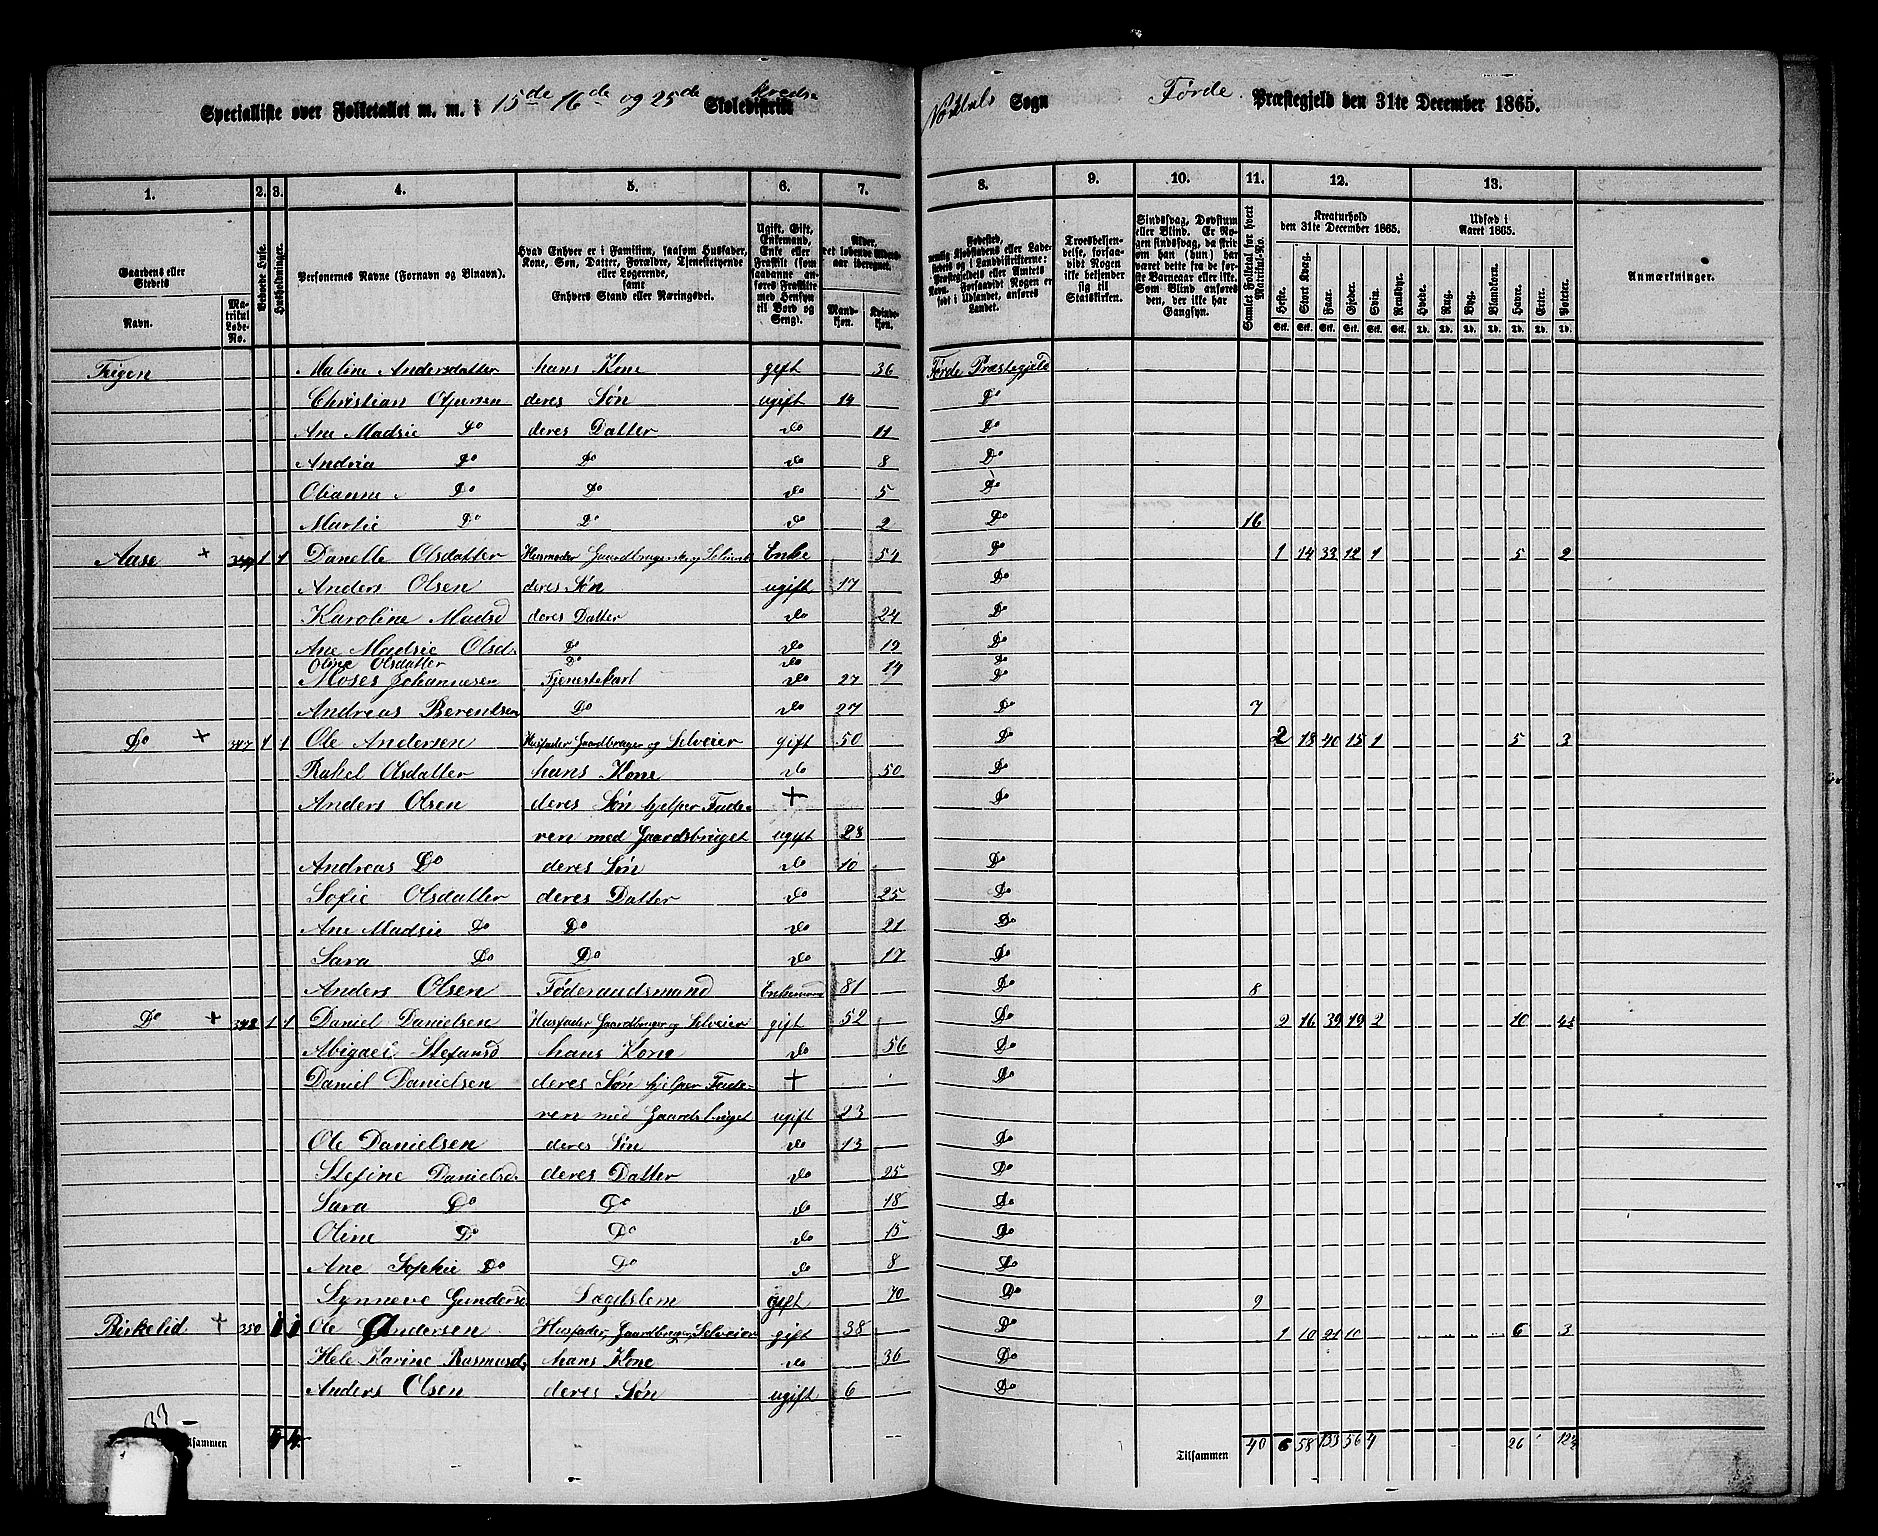 Specialliste over Folketallet m. m. i 15de 16de og 25de Skoledistrikt kreds
Sogn Førde Præstegjeld den 31te December 1865.
1. 2. 3. 4. 5. 6. 7. 8. 9. 10. 11. 12. 13.
Gaardens eller Stedets Navn. Matrikul Løbe-No. Beboede Huse. Husholdninger. Personernes Navne (Fornavn og Tilnavn).
Hvad Enhver er i Familien, saasom Husfader, Kone, Søn, Datter, Forældre, Tjenestetyende eller Logerende, samt Enhvers Stand eller Næringsvei.
Ugift, Gift, Enkemand, Enke eller Fraskilt (som saadanne anføres Fraskilte med Hensyn til Bord og Seng).
Alder, det løbende Alders-aar iberegnet. Mandkjøn. Kvindekjøn.
Troesbekjendelse, forsaavidt Nogen ikke bekjender sig til Statskirken.
Sindssvag, Døvstum eller Blind. Er Nogen sindssvag, da hvorvidt han (hun) har været dette fra de første Barneaar eller ikke. Som Blind anføres den, der ikke har Gangsyn.
Samlet Folketal for hvert Matrikul-No.
Kreaturhold den 31te December 1865. Heste. Stort Kvæg. Faar. Gjeder. Svin. Rensdyr.
Udsæd i Aaret 1865. Hvede. Rug. Byg. Blandkorn. Havre. Erter. Poteter.
Anmærkninger.
Malene Andersdatter hans Kone gift 36 Førde Præstegjeld
Christian deres Søn ugift 14 Do
Ane Madsie Do deres Datter do 11 Do
Andria Do Do do 8 Do
Olianne Do Do do 5 Do
Martie Do Do do 2 Do 16
Aase + 1 1 Danelle Olsdatter Husmoder Enke 54 Do 1 14 33 12 1 5 2
Anders Olsen deres Søn ugift 17 Do
Karoline Madsd deres Datter do 24 Do
Ane Madsie Olsd. Do do 19 Do
Oline Olsdatter Do do 14 Do
Moses Johannesen Tjenestekarl do 27 Do
Andreas Berentsen Do do 27 Do 7
Do + 347 1 1 Ole Andersen Husfader Gaardbruger og Selveier gift 50 Do 2 18 40 15 1 5 3
Rakel Olsdatter hans Kone do 50 Do
Anders Olsen deres Søn hjelper Fade- + Do
ren med Gaardsbruget ugift 28
Andreas Do deres Søn do 10 Do
Sofie Olsdatter deres Datter do 25 Do
Ane Madsie Do Do do 21 Do
Sara Do Do do 17 Do
Anders Olsen Føderaadsmand Enkemand 81 Do 8
Do + 348 1 1 Daniel Danielsen Husfader Gaardbruger og Selveier gift 52 Do 2 16 39 19 2 10
Abigael Stefansd hans Kone do 56 Do
Daniel Danielsen deres Søn hjelper Fade- + Do
ren med Gaardsbruget ugift 23
Ole Danielsen deres Søn do 13 Do
Stefine Danielsd. deres Datter do 25 Do
Sara Do Do do 18 Do
Oline Do Do do 15 Do
Ane Sophie Do Do do 8 Do
Synneve Gundersd. Lægdslem gift 70 Do 9
Birkelid + 350 1 1 Ole Andersen Husfader, Gaardbruger Selveier gift 38 Do 1 10 21 10 6 3
Hele Karine Rasmusd. hans Kone do 36 Do
Anders Olsen deres Søn ugift 6 Do
33
Tilsammen 4 4 Tilsammen 40 6 58 133 56 4 26